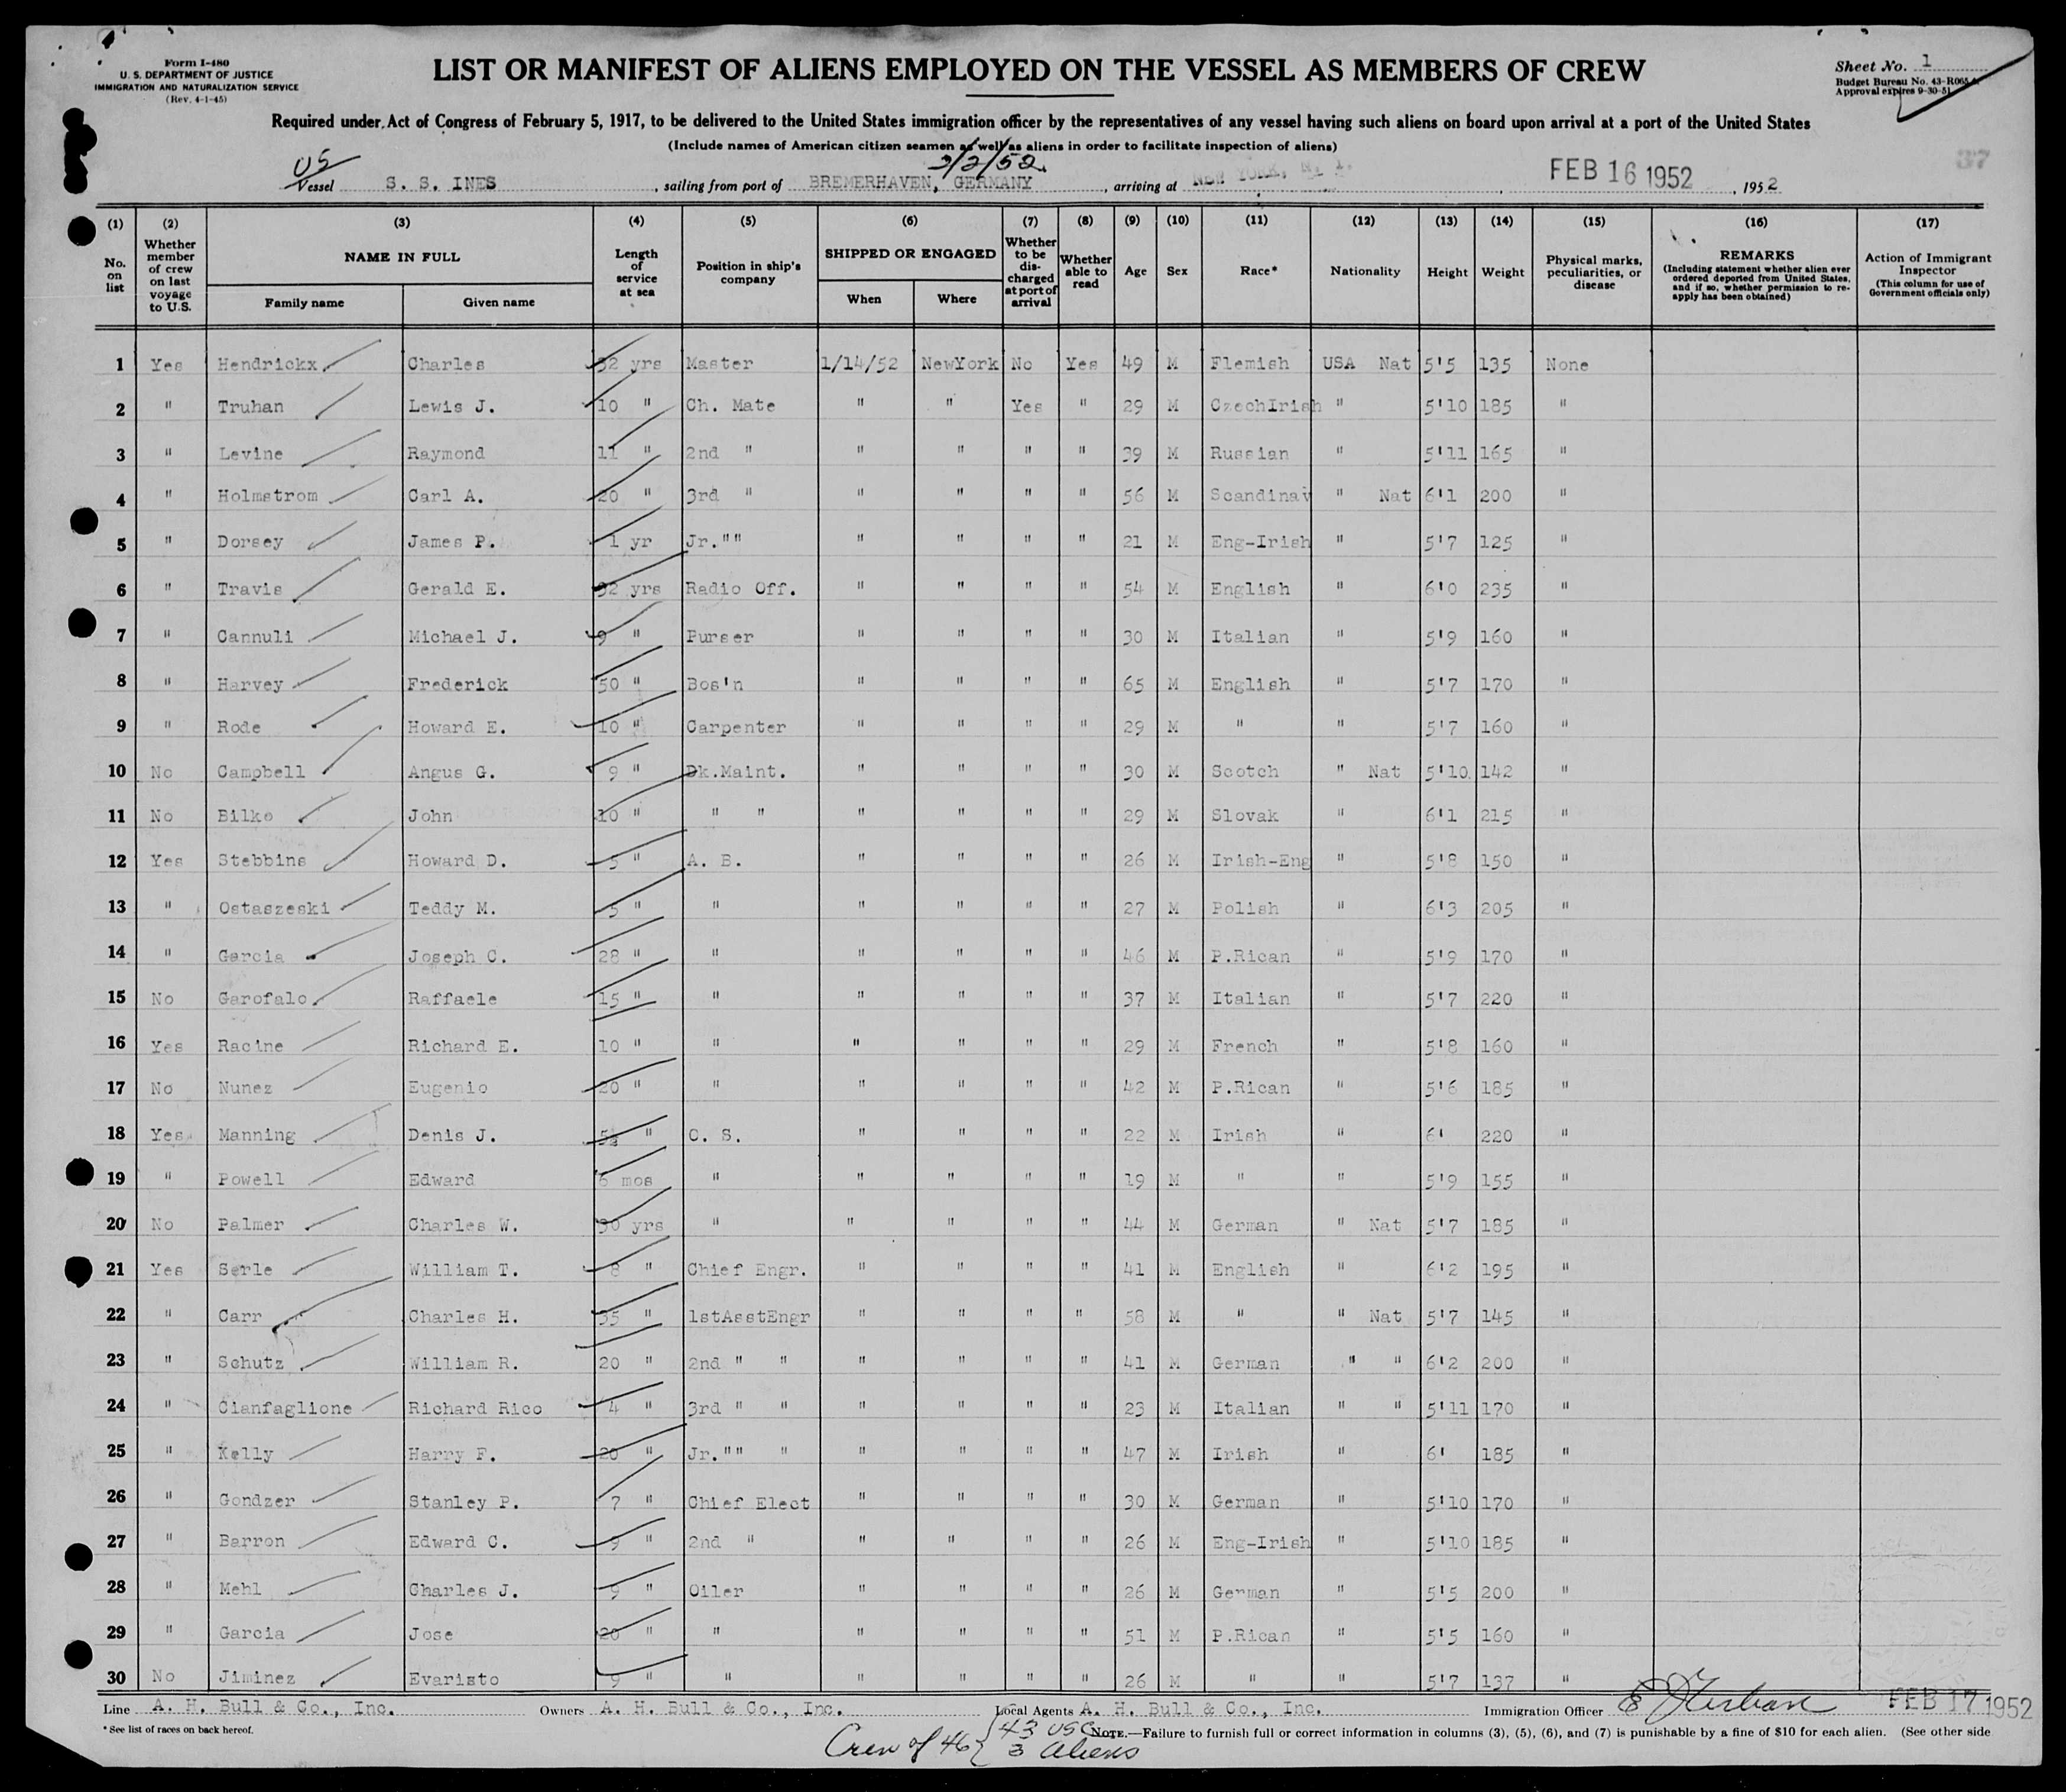 Form I-480
U. S. DEPARTMENT OF JUSTICE
IMMIGRATION AND NATURALIZATION SERVICE
(Rev. 4-1-45)
LIST OR MANIFEST OF ALIENS EMPLOYED ON THE VESSEL AS MEMBERS OF CREW
Sheet No. 1
Budget Bureau No. 43-R065
Approval expires 9-30-51
Required under Act of Congress of February 5, 1917, to be delivered to the United States immigration officer by the representatives of any vessel having such aliens on board upon arrival at a port of the United States
(Include names of American citizen seamen as well as aliens in order to facilitate inspection of aliens)
US
2/2/52
37
Vessel S. S. INES, sailing from port of BREMERHAVEN, GERMANY, arriving at NEW YORK, N. Y., FEB 16 1952, 1952
(1) No. on list
(2) Whether member of crew on last voyage to U.S.
(3) NAME IN FULL Family name Given name
(4) Length of service at sea
(5) Position in ship's company
(6) SHIPPED OR ENGAGED When Where
(7) Whether to be discharged at port of arrival
(8) Whether able to read
(9) Age
(10) Sex
(11) Race*
(12) Nationality
(13) Height
(14) Weight
(15) Physical marks, peculiarities, or disease
(16) REMARKS (Including statement whether alien ever ordered deported from United States, and if so, whether permission to re-apply has been obtained)
(17) Action of Immigrant Inspector (This column for use of Government officials only)
1 Yes Hendrickx Charles 32 yrs Master 1/14/52 NewYork No Yes 49 M Flemish USA Nat 5'5 135 None
2 " Truhan Lewis J. 10 " Ch. Mate " " Yes " 29 M CzechIrish " 5'10 185 "
3 " Levine Raymond 11 " 2nd " " " " " 39 M Russian " 5'11 165 "
4 " Holmstrom Carl A. 20 " 3rd " " " " " 56 M Scandinav " Nat 6'1 200 "
5 " Dorsey James P. 1 yr Jr."" " " " " 21 M Eng-Irish " 5'7 125 "
6 " Travis Gerald E. 32 yrs Radio Off. " " " " 54 M English " 6'0 235 "
7 " Cannuli Michael J. 9 " Purser " " " " 30 M Italian " 5'9 160 "
8 " Harvey Frederick 50 " Bos'n " " " " 65 M English " 5'7 170 "
9 " Rode Howard E. 10 " Carpenter " " " " 29 M " " 5'7 160 "
10 No Campbell Angus G. 9 " Dk.Maint. " " " " 30 M Scotch " Nat 5'10 142 "
11 No Bilko John 10 " " " " " " " 29 M Slovak " 6'1 215 "
12 Yes Stebbins Howard D. 5 " A. B. " " " " 26 M Irish-Eng " 5'8 150 "
13 " Ostaszeski Teddy M. 5 " " " " " " 27 M Polish " 6'3 205 "
14 " Garcia Joseph C. 28 " " " " " " 46 M P.Rican " 5'9 170 "
15 No Garofalo Raffaele 15 " " " " " " 37 M Italian " 5'7 220 "
16 Yes Racine Richard E. 10 " " " " " " 29 M French " 5'8 160 "
17 No Nunez Eugenio 20 " " " " " " 42 M P.Rican " 5'6 185 "
18 Yes Manning Denis J. 5½ " O. S. " " " " 22 M Irish " 6' 220 "
19 " Powell Edward 6 mos " " " " " 19 M " " 5'9 155 "
20 No Palmer Charles W. 30 yrs " " " " " 44 M German " Nat 5'7 185 "
21 Yes Serle William T. 8 " Chief Engr. " " " " 41 M English " 6'2 195 "
22 " Carr Charles H. 35 " 1stAsstEngr " " " " 58 M " " Nat 5'7 145 "
23 " Schutz William R. 20 " 2nd " " " " " " 41 M German " " 6'2 200 "
24 " Cianfaglione Richard Rico 4 " 3rd " " " " " " 23 M Italian " " 5'11 170 "
25 " Kelly Harry F. 20 " Jr."" " " " " " 47 M Irish " 6' 185 "
26 " Gondzer Stanley P. 7 " Chief Elect " " " " 30 M German " 5'10 170 "
27 " Barron Edward C. 9 " 2nd " " " " " 26 M Eng-Irish " 5'10 185 "
28 " Mehl Charles J. 9 " Oiler " " " " 26 M German " 5'5 200 "
29 " Garcia Jose 20 " " " " " " 51 M P.Rican " 5'5 160 "
30 No Jiminez Evaristo 9 " " " " " " 26 M " " 5'7 137 "
Line A. H. Bull & Co., Inc. Owners A. H. Bull & Co., Inc. Local Agents A. H. Bull & Co., Inc. Immigration Officer FEB 17 1952
* See list of races on back hereof.
NOTE.—Failure to furnish full or correct information in columns (3), (5), (6), and (7) is punishable by a fine of $10 for each alien. (See other side
Crew of 46 { 43 USC
3 Aliens